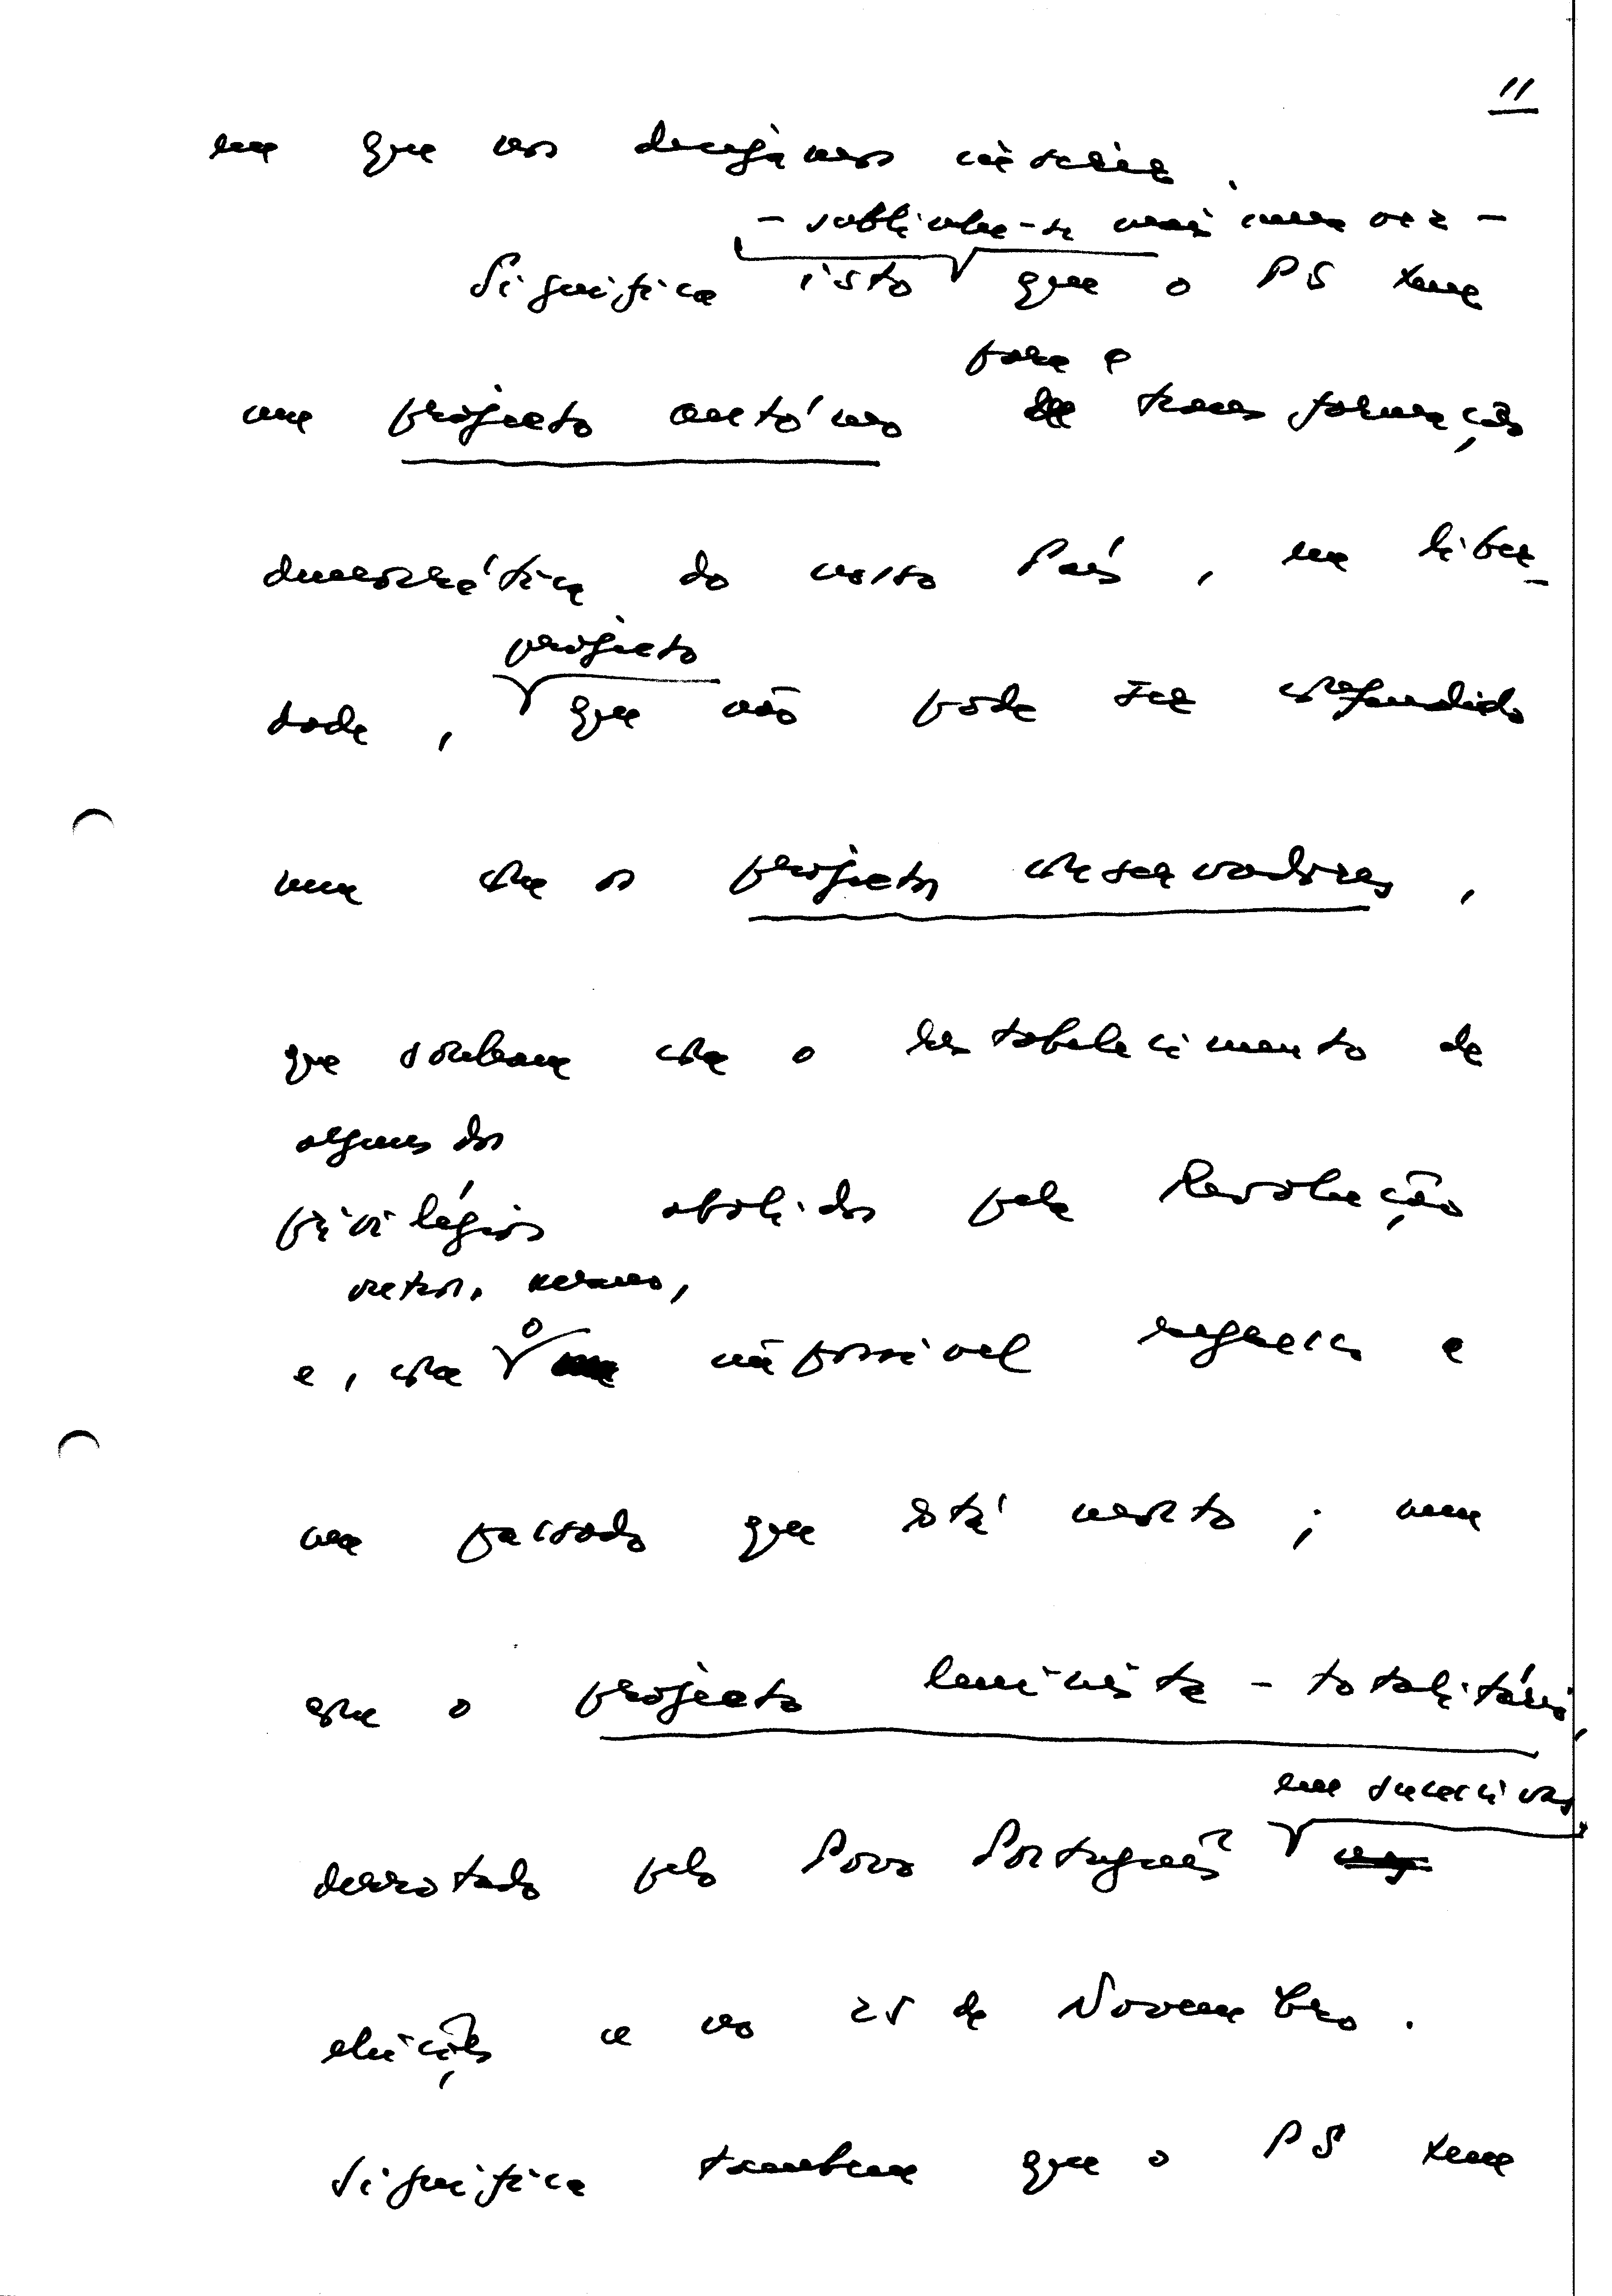 11
em que nos desejamos inserir.
- sublinhe-se mais uma vez -
Significa isto que o PS tem
para a
um projecto autónomo de transformação
democrática do nosso País, em liber-
projecto
dade, que não pode ser confundido
nem com os projectos conservadores,
que sonham com o restabelecimento de
alguns dos
privilégios abolidos pela Revolução
e, com o impossível regresso a
um passado que está morto; nem
com o projecto leninista-totalitário,
em sucessivas
derrotado pelo Povo Português
eleições e no 25 de Novembro.
Significa também que o PS tem